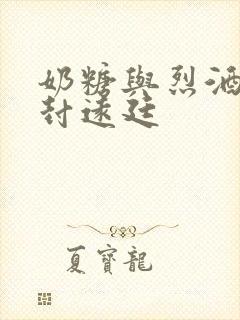 奶糖與烈酒
封遠廷
夏寶龍